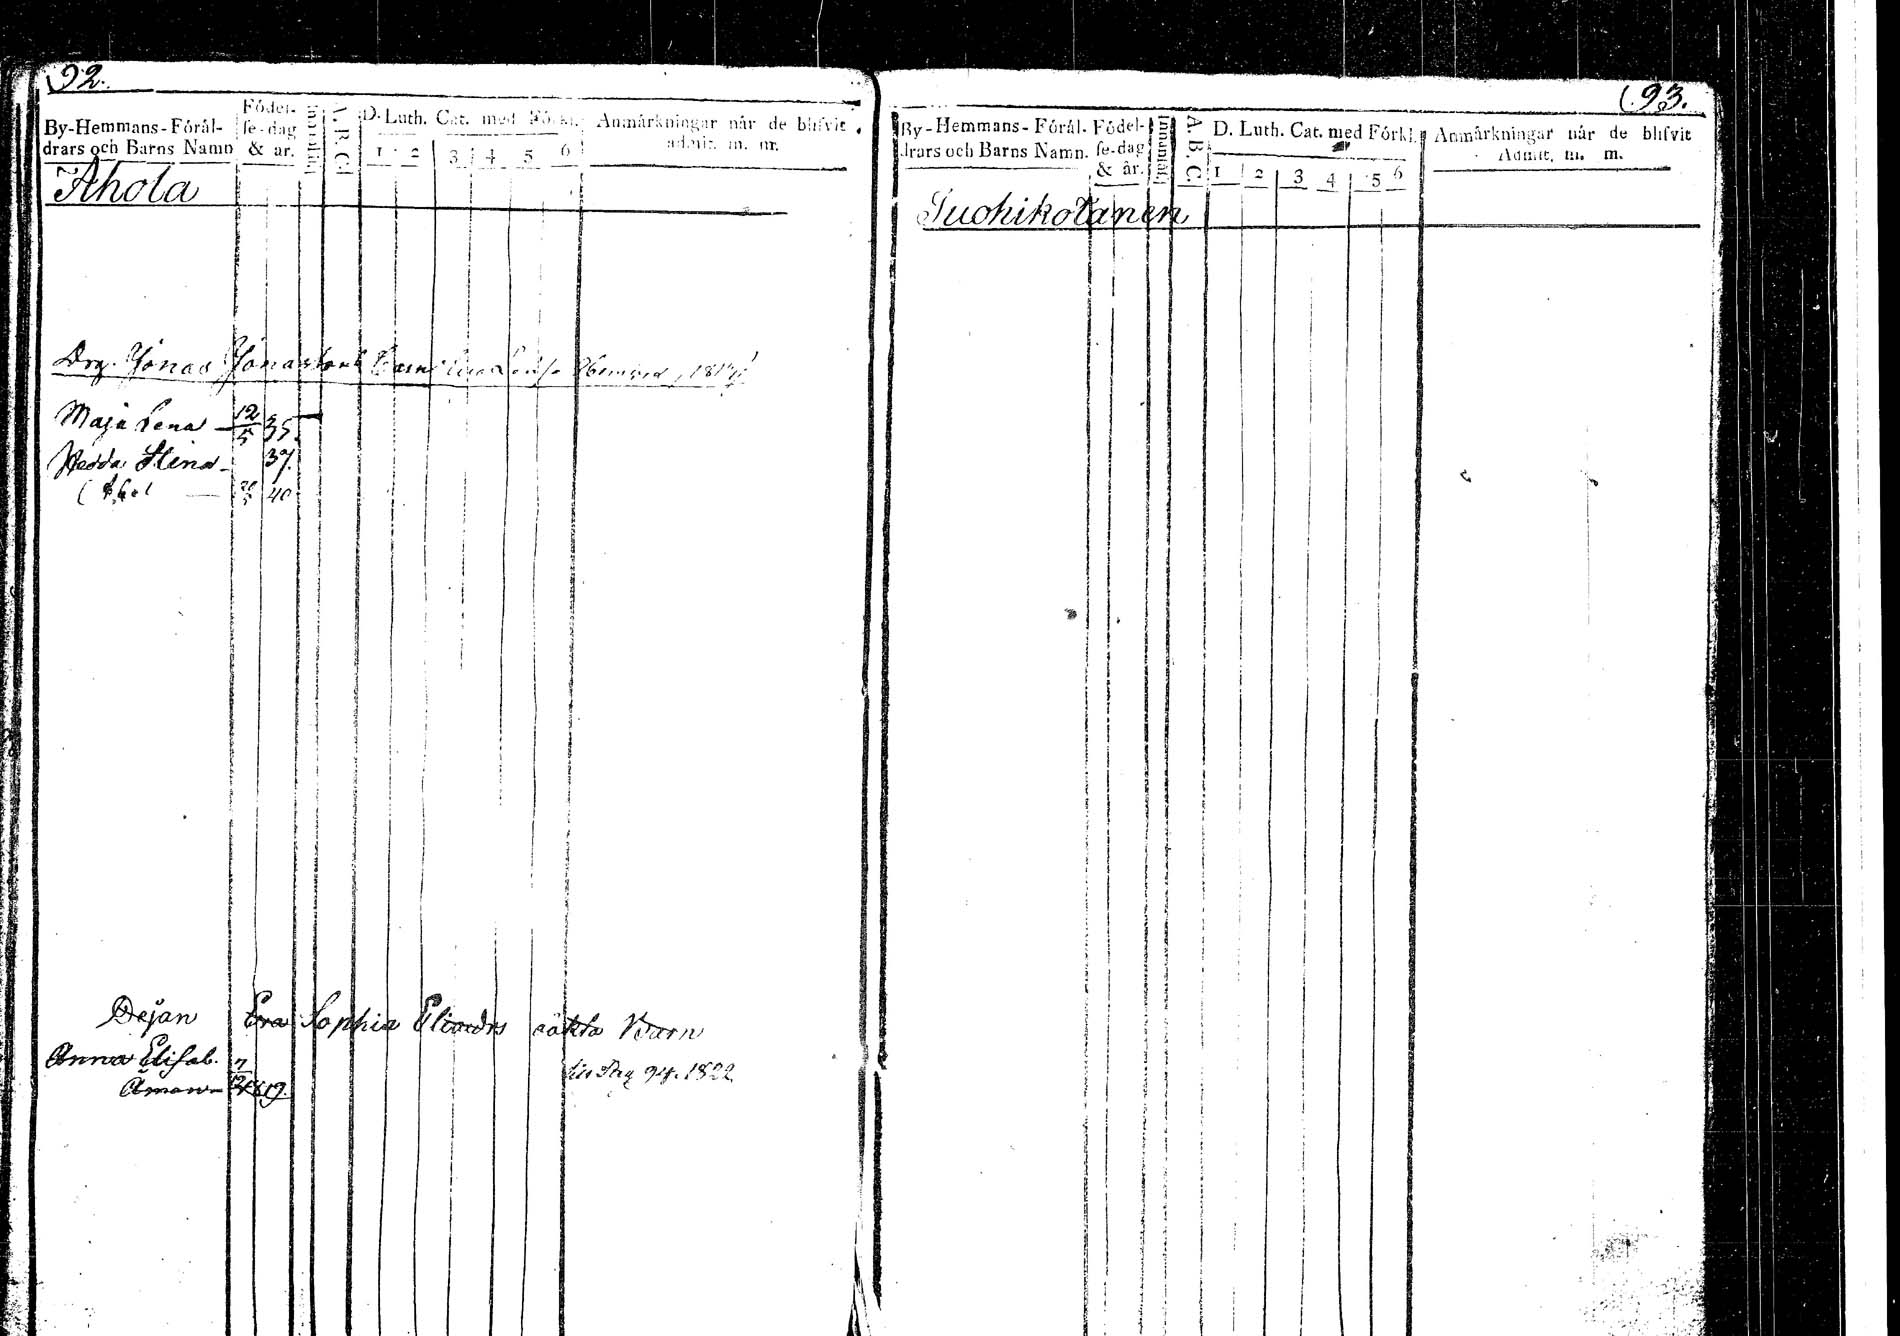 92.
By-Hemmans-Föräl-
drars och Barns Namn
Födel-
se-dag
& år.
A. B. C.
D. Luth. Cat. med Förkl.
1 2 3 4 5 6
Anmärkningar när de blifvit
admit. m. m.
Ahola
Drg. Jonas Jonassons Barn
Maja Lena — 12/5 35.
Hedda Stina — 37.
Abel — 20/5 40
Dejan Eva Sophia oäkta Barn
Anna Elisab. 7/12 1819.
Aman
pag 94. 1822
93.
By-Hemmans-Föräl-
drars och Barns Namn.
Födel-
se-dag
& år.
Innantill
A. B. C.
D. Luth. Cat. med Förkl.
1 2 3 4 5 6
Anmärkningar når de blifvit
Admit. m. m.
Suohikotanen